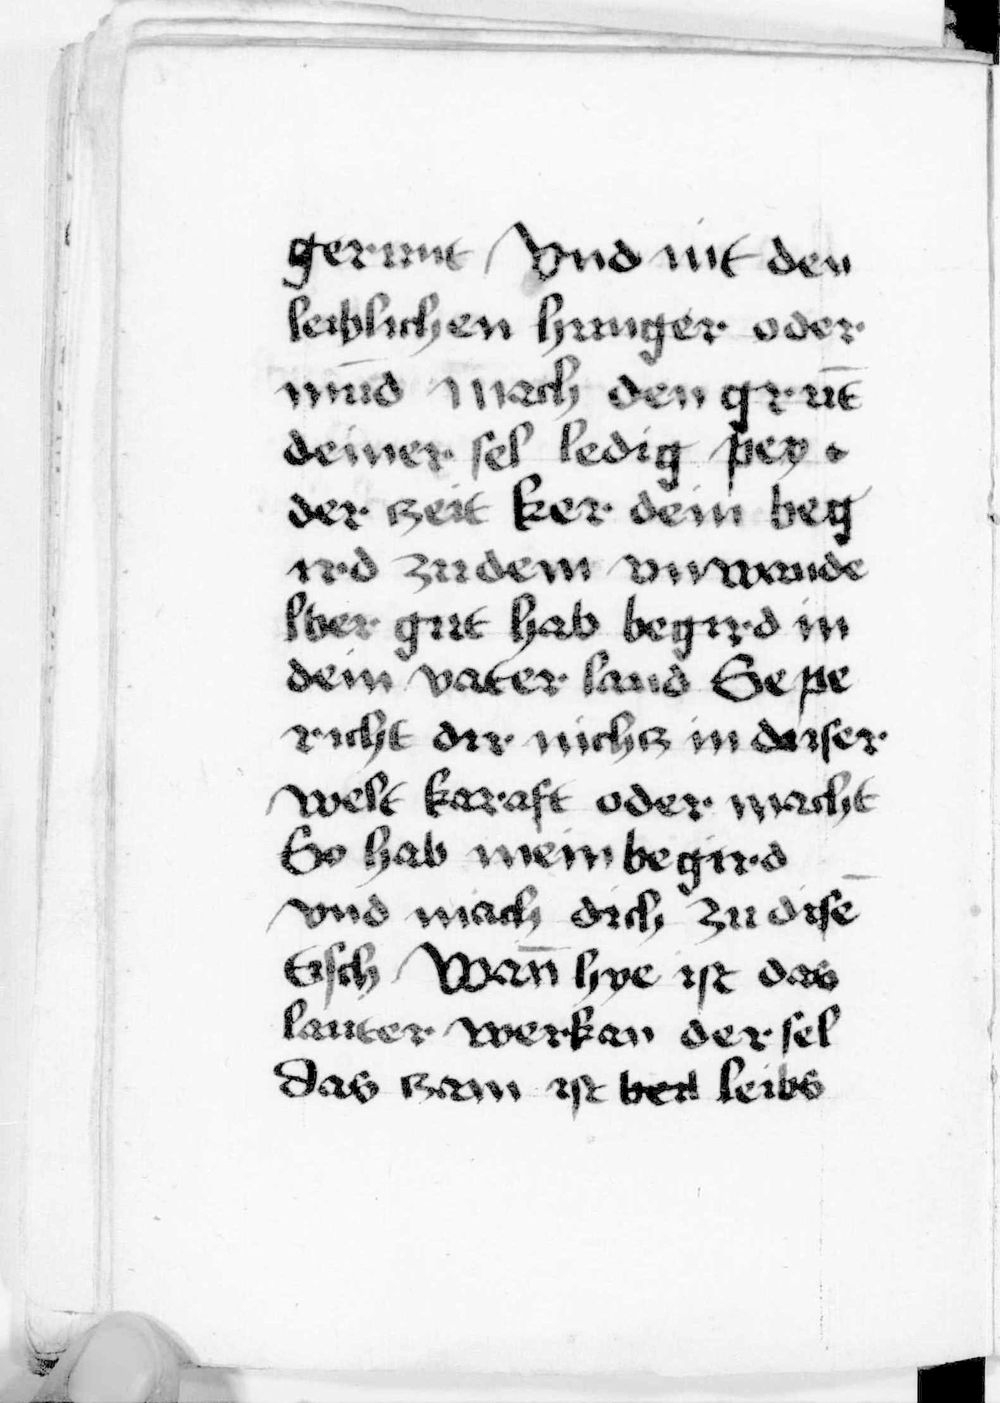 gerunt / Vnd nit den
leiblichen hunger oder
mūd mach den grūt
deiner sel ledig pey
der zeit ker dein beg
ird zu dem vnwande
lber gut hab begird in
dein vater land Se pe
richt dir nichz in diser
welt karaft oder macht
So hab mein begird
vnd mach dich zu disē
tisch / Wan̄ hye ist das
lauter werkan der sel
das zam ist leibs